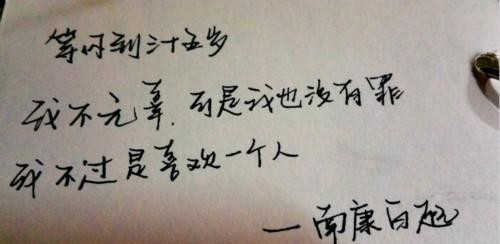 等你到三十五岁
我不无辜.可是我也没有罪
我不过是喜欢一个人
—南康白起